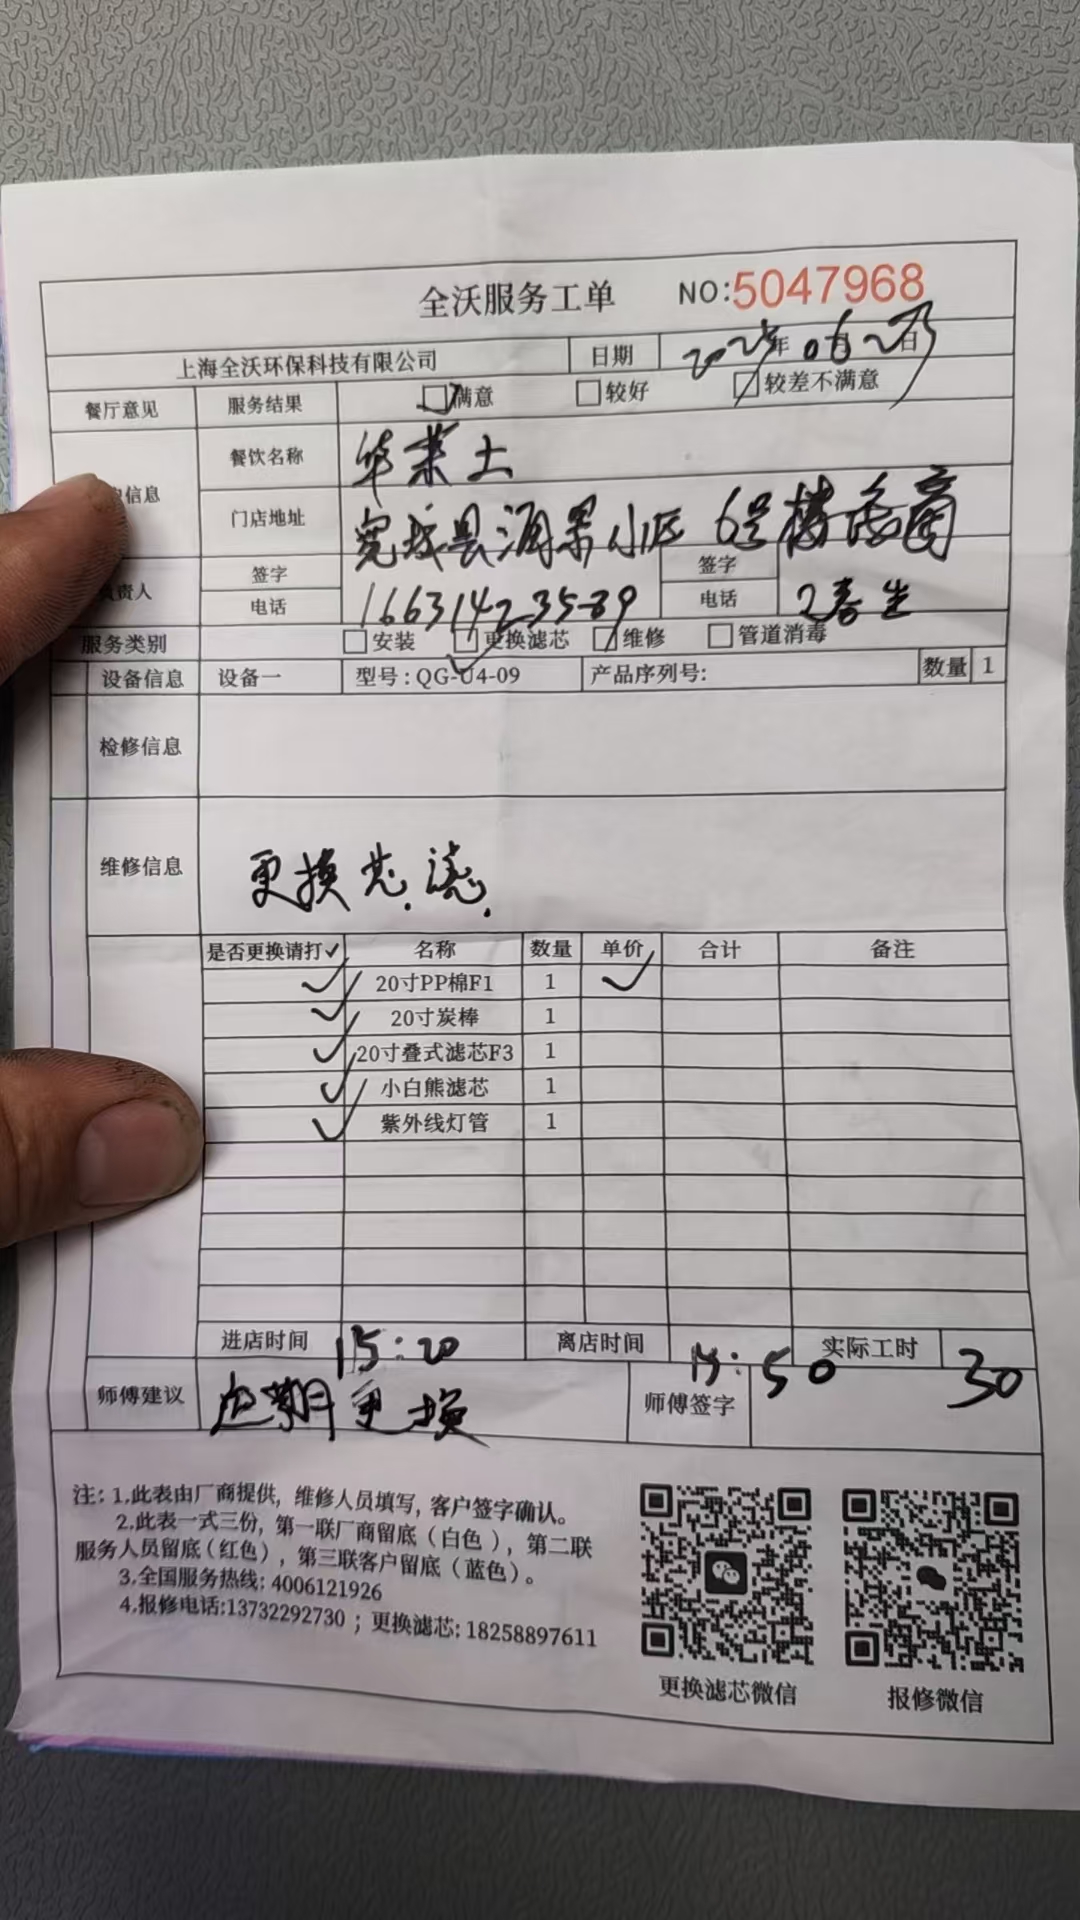 全沃服务工单 NO:5047968
上海全沃环保科技有限公司 日期 2025年06月27日
餐厅意见 服务结果 满意 较好 较差不满意
信息 餐饮名称 华莱士
门店地址 宽城县 小区 6号楼 商
责人 签字 签字
电话 16631423589 电话
服务类别 安装 更换滤芯 维修 管道消毒
设备信息 设备一 型号:QG-U4-09 产品序列号: 数量 1
检修信息
维修信息 更换芯.滤.
是否更换请打✓ 名称 数量 单价 合计 备注
✓ 20寸PP棉F1 1 ✓
✓ 20寸炭棒 1
✓ 20寸叠式滤芯F3 1
✓ 小白熊滤芯 1
✓ 紫外线灯管 1
进店时间 15:20 离店时间 15:50 实际工时 30
师傅建议 期更换 师傅签字
注: 1.此表由厂商提供, 维修人员填写, 客户签字确认。
2.此表一式三份, 第一联厂商留底(白色), 第二联
服务人员留底(红色), 第三联客户留底(蓝色)。
3.全国服务热线: 4006121926
4.报修电话:13732292730 ; 更换滤芯: 18258897611
更换滤芯微信 报修微信